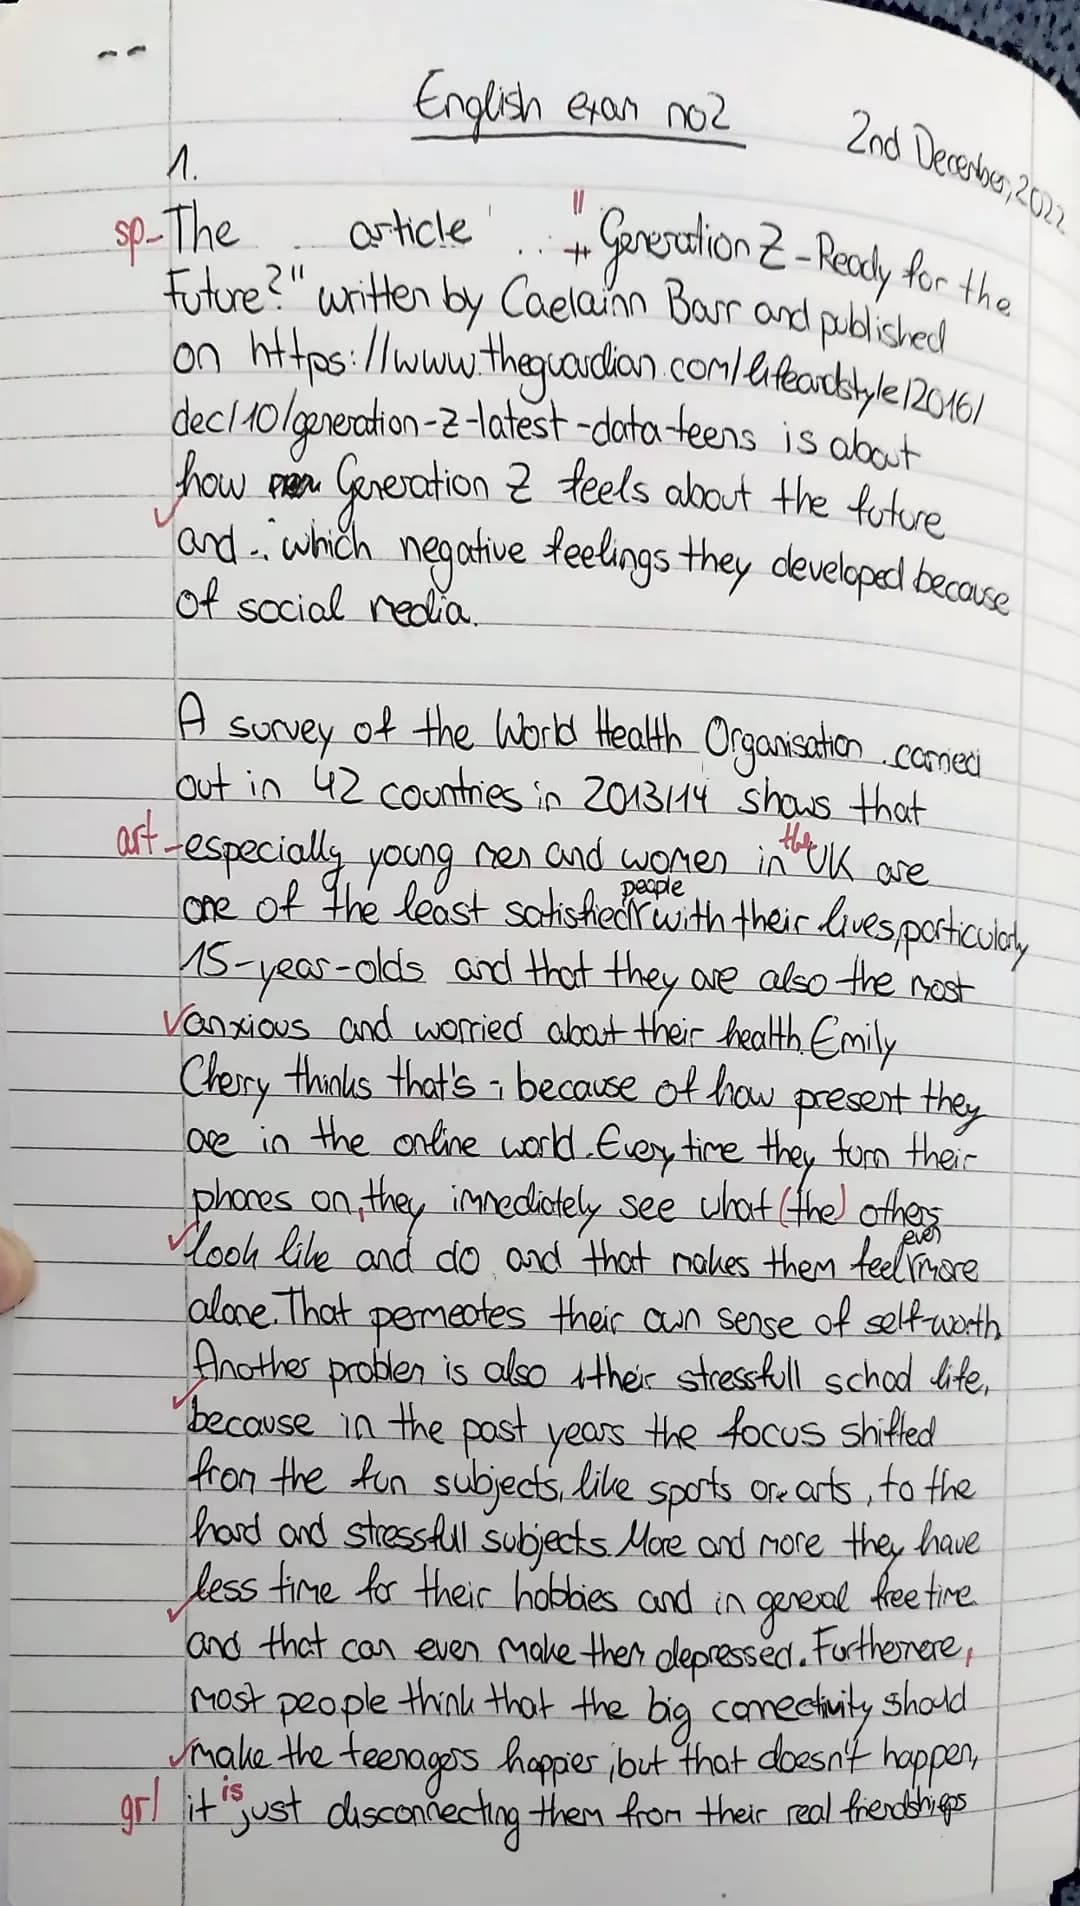 English exam no2
2nd December, 2022
1.
sp-The article " Generation Z - Ready for the
Future?" written by Caelainn Barr and published
on https://www.theguardian.com/lifeandstyle/2016/
dec/10/generation-z-latest-data-teens is about
how Generation Z feels about the future
and which negative feelings they developed because
of social media.
A survey of the World Health Organisation carried
out in 42 countries in 2013/14 shows that
art -especially young men and women in the UK are
one of the least satisfied people with their lives, particularly
15-year-olds and that they are also the most
anxious and worried about their health. Emily
Cherry thinks that's because of how present they
are in the online world. Every time they turn their
phones on, they immediately see what (the) others
look like and do and that makes them feel even more
alone. That permeates their own sense of self-worth.
Another problem is also their stressfull school life,
because in the past years the focus shifted
from the fun subjects, like sports or arts, to the
hard and stressfull subjects. More and more they have
less time for their hobbies and in general free time
and that can even make them depressed. Furthermere,
most people think that the big connectivity should
make the teenagers happier, but that doesn't happen,
grl it is just disconnecting them from their real friendships